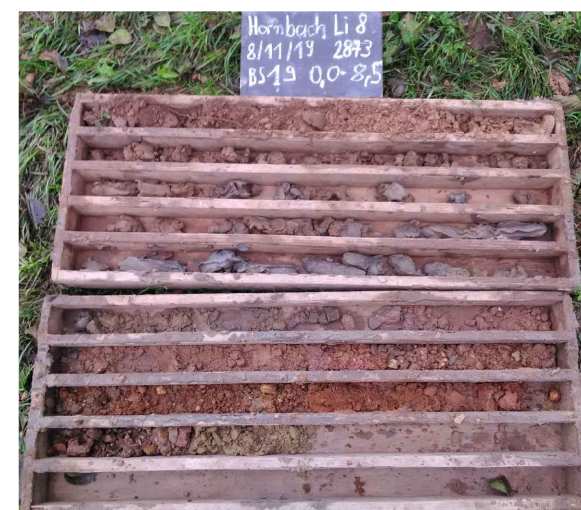 Hornbach Li 8
8/11/19 2873
BS19 0,0-8,5